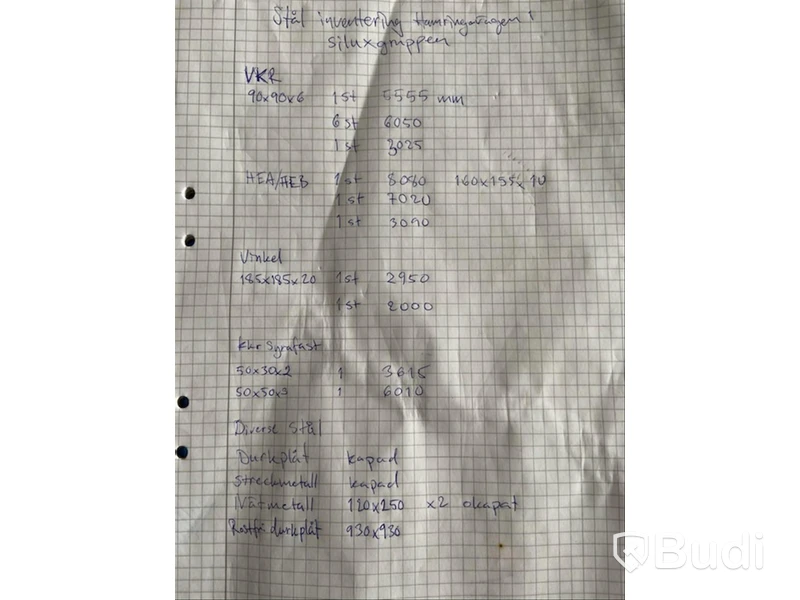 Stål inventering Hamringevägen 1
siluxgruppen
VKR
90x90x6 1 st 5555 mm
6 st 6050
1 st 3025
HEA/HEB 1 st 8080 160x155x10
1 st 7020
1 st 3090
Vinkel
185x185x20 1 st 2950
1 st 2000
kkr syrafast
50x30x2 1 3615
50x50x3 1 6010
Diverse Stål
Durkplåt kapad
Streckmetall kapad
Nätmetall 120x250 x2 okapat
Rostfri durkplåt 930x930
Budi